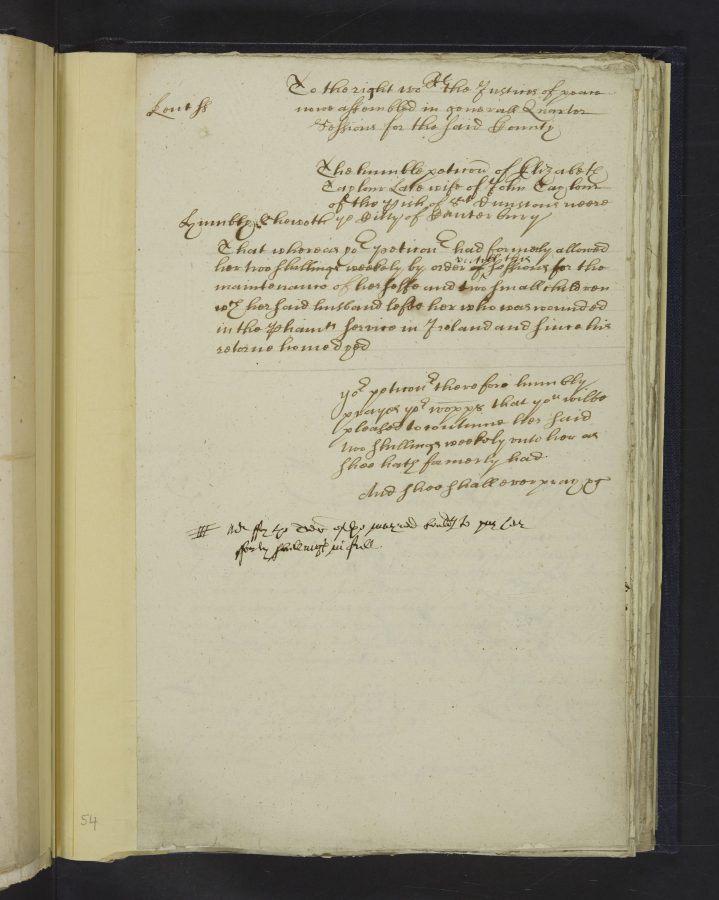 Kent ss
To the right wo:ll the Justices of peace
nowe assembled in generall Quarter
Sessions for the said County
The humble peticon of Elizabeth
Taylour late wife of John Taylour
of the pish of St Dunstons neere
Humbly Sheweth ye Citty of Canterbury
That whereas yor peticonr had formerly allowed
her two shillings weekely by order of Sessions for the
maintenance of herselfe and two small children
wch her said husband lefte her who was wounded
in the Pliamts service in Ireland and since his
retorne home dyed
yor peticonr therefore humbly
prayes yor wopps that you wilbe
pleased to continue her said
two shillings weekely unto her as
shee hath formerly had.
And shee shall ever pray &c
forty shillings in full.
54